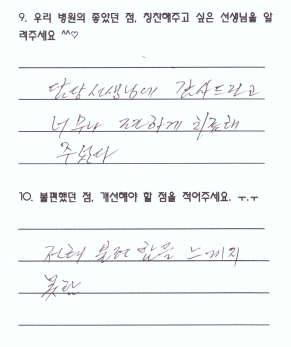 9. 우리 병원의 좋았던 점, 칭찬해주고 싶은 선생님을 알
려주세요 ^^♡
담당선생님에 감사드리고
너무나 친절하게 치료해
주셨다
10. 불편했던 점, 개선해야 할 점을 적어주세요. ㅜ.ㅜ
전혀 불편함을 느끼지
못함